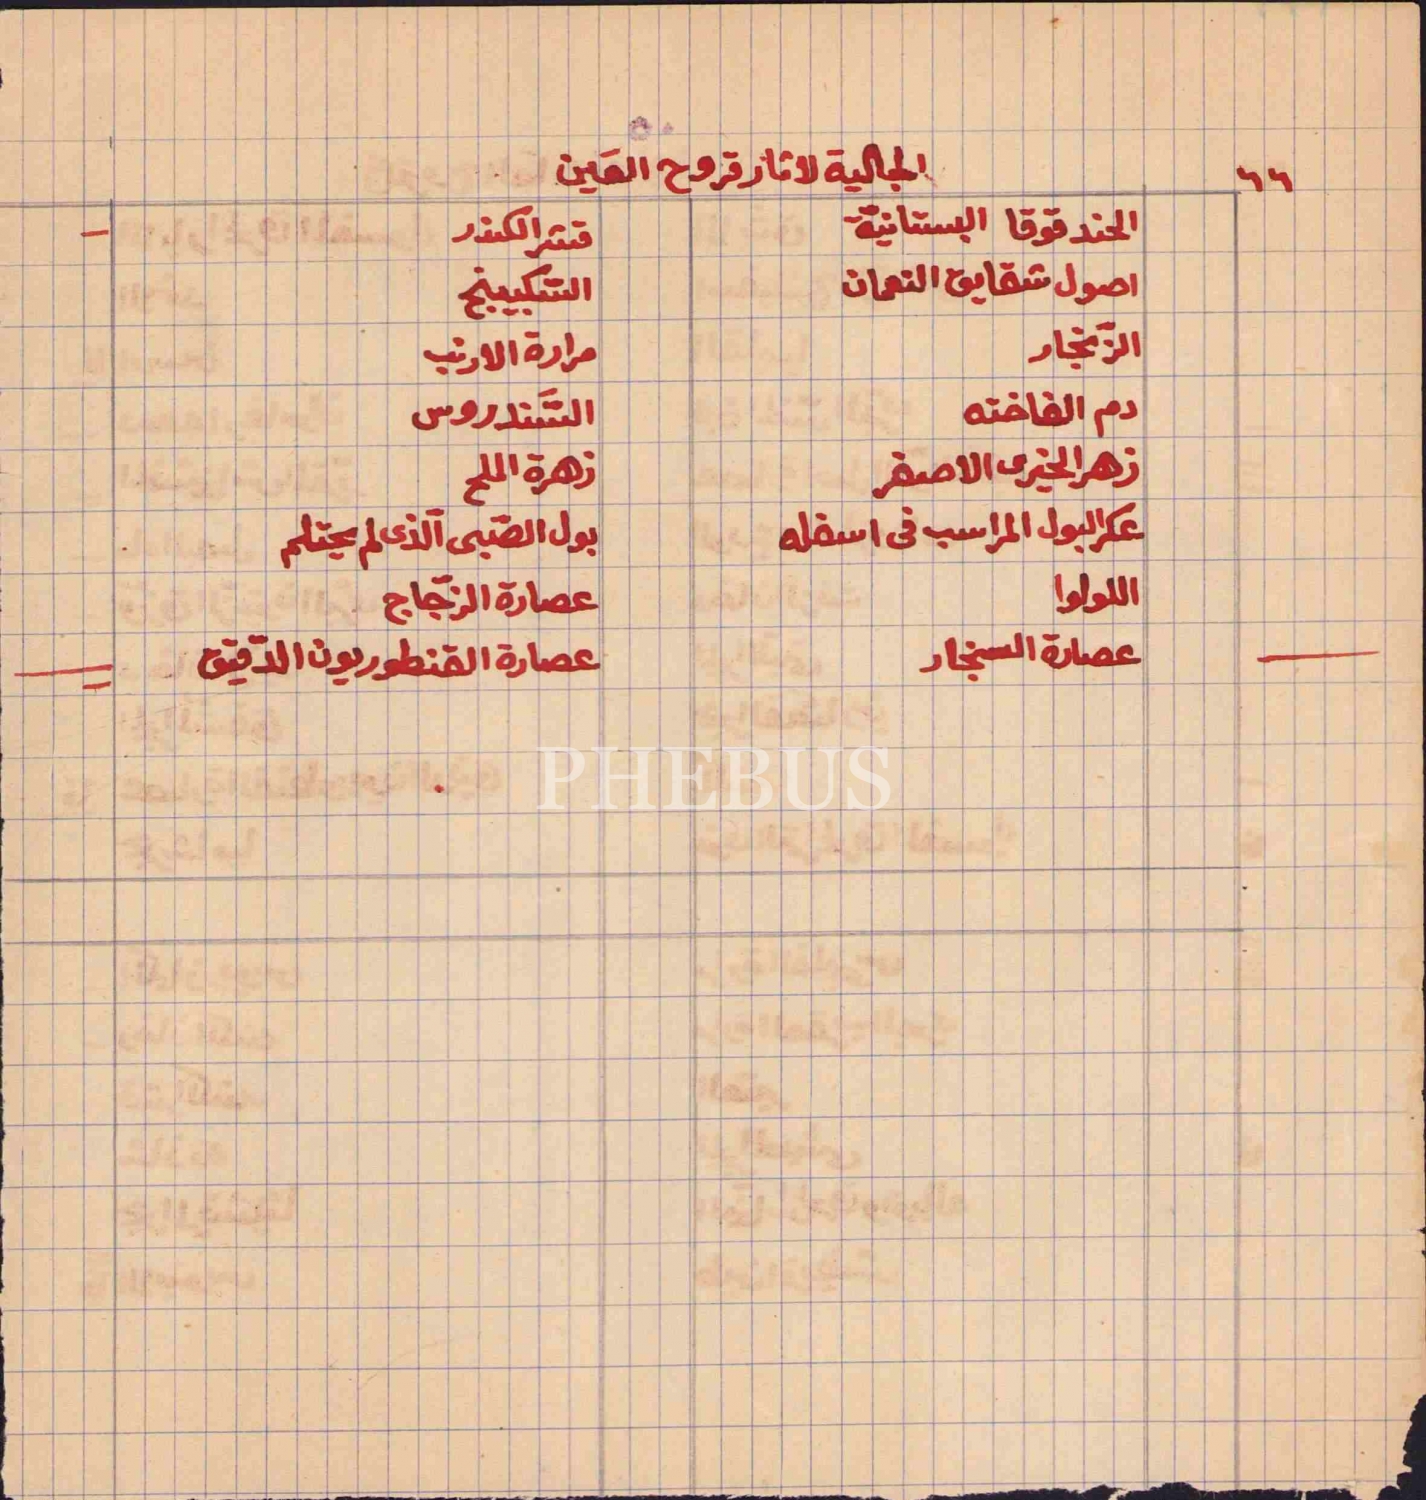 ٦٦
الجالية لاثار قروح العين
الحندقوقا البستانية
اصول شقايق النعمان
الزنجار
دم الفاخته
زهر الخيرى الاصفر
عكر البول المراسب فى اسفله
اللولوا
عصارة السنجار
قشر الكندر
السّكبينج
مرارة الارنب
زهرة الملح
بول الصّبى الّذى لم يحتلم
عصارة الزّجاج
عصارة القنطوريون الدّقيق
PHEBUS